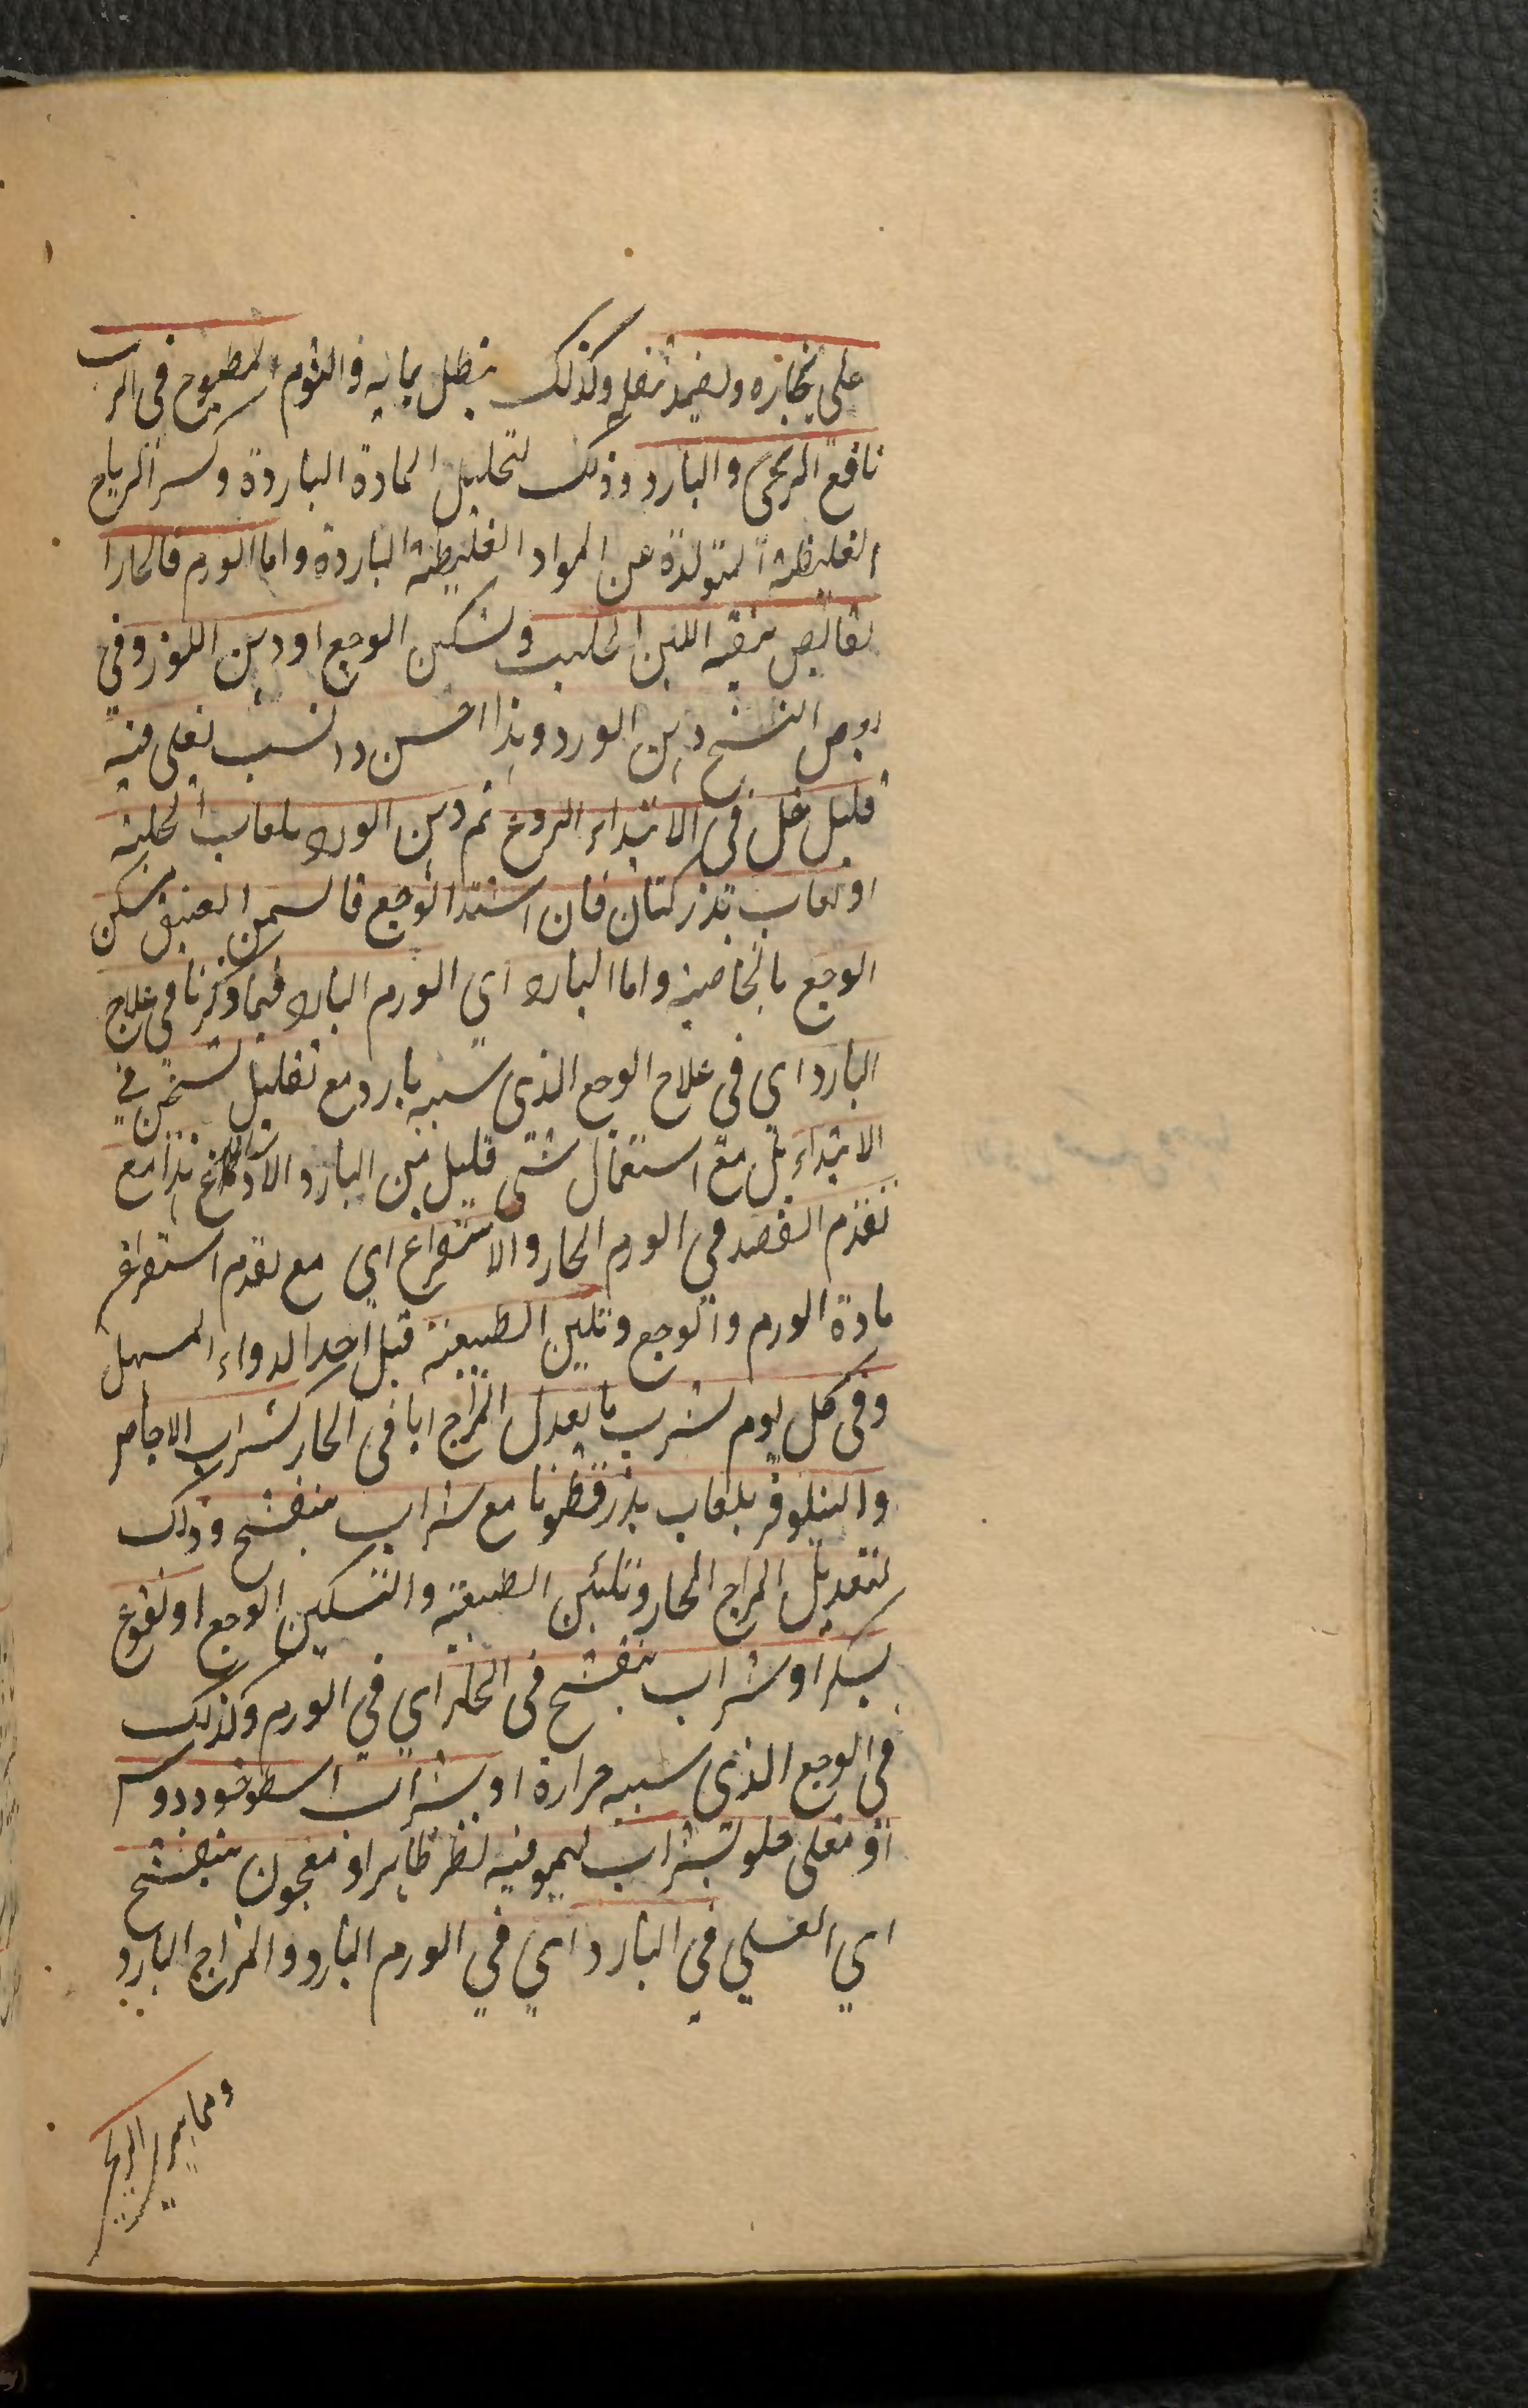 على بخاره ويضمد بثفله وكذلك ينطل بمائه والثوم المطبوخ في الزيت
نافع الريحي والبارد وذلك لتحليل المادة الباردة وكسر الرياح
الغليظة المتولدة عن المواد الغليظة الباردة واما الورم فالحار
اللبن الحليب وتسكين الوجع اودهن اللوز وفي
بعض النسخ دهن الورد وهذا احسن وانسب يغلى فيه
قليل خل في الابتداء الروع ثم دهن الورد بلعاب الحلبة
او لعاب بذر كتان فان اشتد الوجع فالسمن العتيق يسكن
الوجع بالخاصية واما البارد اي الورم البارد فبما ذكرنا في علاج
البارد اي في علاج الوجع الذي سببه بارد مع تقليل تسخين في
الابتداء بل مع استعمال شئ قليل من البارد هذا مع
تقدم الفصد في الورم الحار والاستفراغ اي مع تقدم استفراغ
مادة الورم والوجع وتليين الطبيعة قبل اخذ الدواء المسهل
وفي كل يوم بشرب ما يعدل المزاج اما في الحار كشراب الاجاص
والنيلوفر بلعاب بذر قطونا مع شراب بنفسج وذلك
لتعديل المزاج الحار وتليين الطبيعة والتسكين الوجع او نقوع
بسكر او شراب بنفسج في الحار اي في الورم وكذلك
في الوجع الذي سببه حرارة او بشراب اسطوخودوس
او مغلى حلو بشراب ليمو فيه نظر ظاهر او معجون بنفسج
اي العسلي في البارد اي في الورم البارد والمزاج البارد
ومما الريح